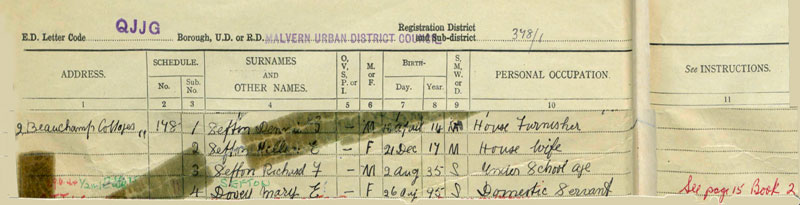 E.D. Letter Code QJJG Borough, U.D. or R.D. MALVERN URBAN DISTRICT COUNCIL Registration District and Sub-district 378/1
ADDRESS. SCHEDULE. SURNAMES AND OTHER NAMES. O, V, S, P, or I. M. or F. BIRTH— S, M, W, or D. PERSONAL OCCUPATION. See INSTRUCTIONS.
No. Sub. No. Day. Year.
1 2 3 4 5 6 7 8 9 10 11
2 Beauchamp Cottages 148 1 Sefton — M April 14 M House Furnisher
2 Sefton E — F 21 Dec 17 M House Wife
3 Sefton Richard F — M 2 Aug 35 S Under School age
SEFTON
4 Mary E — F 26 S Domestic Servant
See page 15 Book 2